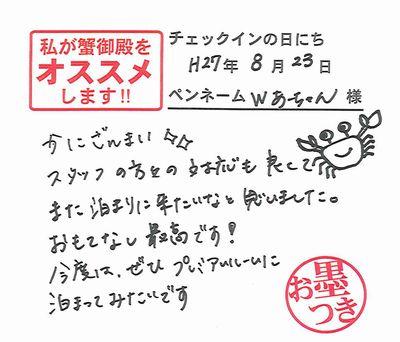 私が蟹御殿を
オススメ
します!!
チェックインの日にち
H27年 8月 23日
ペンネーム Wあちゃん 様
かにざんまい ☆☆
スタッフの方々の対応も良くて
また泊まりに来たいなと思いました。
おもてなし最高です!
今度は、ぜひプレミアムルームに
泊まってみたいです
お墨つき